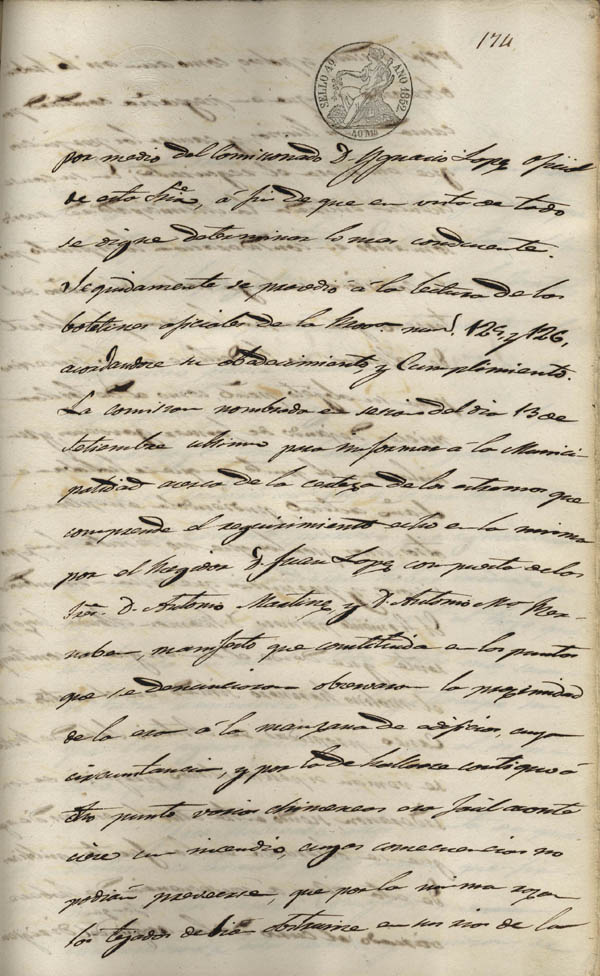 174
SELLO 4º AÑO 1852
40 MS
por medio del Comisionado D. Ygnacio Lopez oficial
de esta Sria, á fin de que en vista de todo
se digne determinar lo mas conducente.
Seguidamente se procedió á la lectura de los
boletines oficiales de la Prov. num.s 125, y 126,
acordandose su obedecimiento y Cumplimiento.
La comision nombrada en sesion del dia 13 de
Setiembre ultimo para informar á la Munici-
palidad acerca de la certeza de los estremos que
comprende el requirimiento echo en la misma
por el Regidor D. Juan Lopez compuesta de los
Sres. D. Antonio Martinez y D. Antonio Mª Ber-
nabeu, manifestó que constituida en los puntos
que se denunciaron observaron la proximidad
de la era á la manzana de edificios, cuya
circunstancia, y por la de hallarse contiguo á
dho punto varias chimeneas era facil aconte-
ciere un incendio, cuyas consecuencias no
podian preveerse, que por la misma razon
los tejados debian obstruirse en sus rios de la